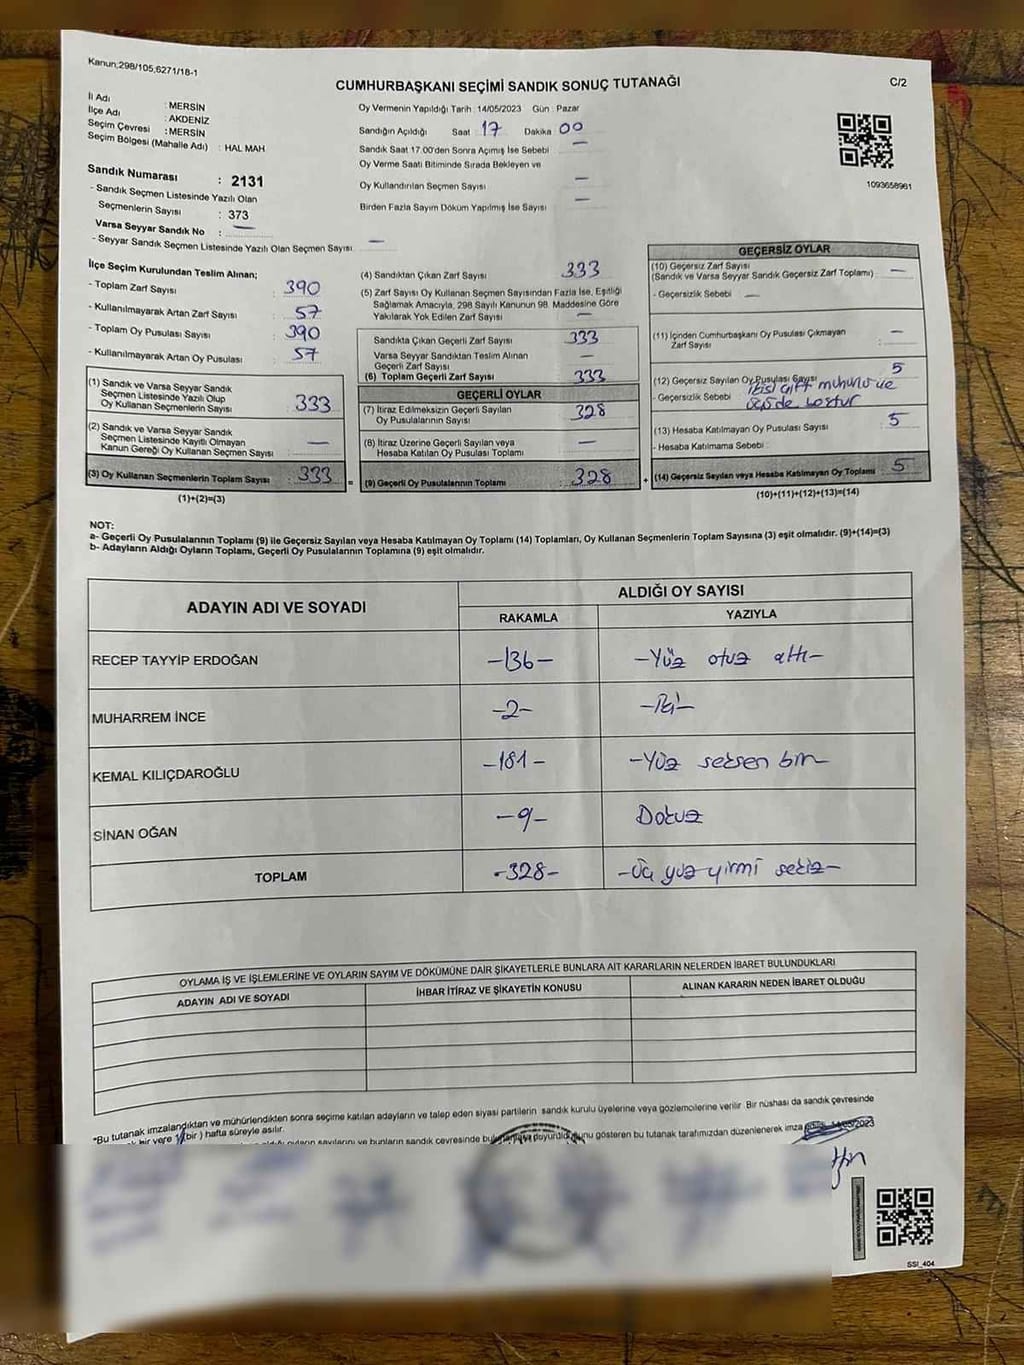 Kanun;298/105,6271/18-1
CUMHURBAŞKANI SEÇİMİ SANDIK SONUÇ TUTANAĞI
C/2
İl Adı : MERSİN
İlçe Adı : AKDENİZ
Seçim Çevresi : MERSİN
Seçim Bölgesi (Mahalle Adı) : HAL MAH
Sandık Numarası : 2131
- Sandık Seçmen Listesinde Yazılı Olan
Seçmenlerin Sayısı : 373
Varsa Seyyar Sandık No : —
- Seyyar Sandık Seçmen Listesinde Yazılı Olan Seçmen Sayısı —
Oy Vermenin Yapıldığı Tarih : 14/05/2023 Gün : Pazar
Sandığın Açıldığı Saat 17 Dakika 00
Sandık Saat 17.00'den Sonra Açımış İse Sebebi —
Oy Verme Saati Bitiminde Sırada Bekleyen ve
Oy Kullandırılan Seçmen Sayısı —
Birden Fazla Sayım Döküm Yapılmış İse Sayısı —
1093658961
İlçe Seçim Kurulundan Teslim Alınan;
- Toplam Zarf Sayısı : 390
- Kullanılmayarak Artan Zarf Sayısı : 57
- Toplam Oy Pusulası Sayısı : 390
- Kullanılmayarak Artan Oy Pusulası : 57
(1) Sandık ve Varsa Seyyar Sandık
Seçmen Listesinde Yazılı Olup
Oy Kullanan Seçmenlerin Sayısı : 333
(2) Sandık ve Varsa Seyyar Sandık
Seçmen Listesinde Kayıtlı Olmayan
Kanun Gereği Oy Kullanan Seçmen Sayısı : —
(3) Oy Kullanan Seçmenlerin Toplam Sayısı : 333 =
(1)+(2)=(3)
(4) Sandıktan Çıkan Zarf Sayısı 333
(5) Zarf Sayısı Oy Kullanan Seçmen Sayısından Fazla İse, Eşitliği
Sağlamak Amacıyla, 298 Sayılı Kanunun 98. Maddesine Göre
Yakılarak Yok Edilen Zarf Sayısı —
Sandıkta Çıkan Geçerli Zarf Sayısı 333
Varsa Seyyar Sandıktan Teslim Alınan
Geçerli Zarf Sayısı —
(6) Toplam Geçerli Zarf Sayısı 333
GEÇERLİ OYLAR
(7) İtiraz Edilmeksizin Geçerli Sayılan
Oy Pusulasının Sayısı : 328
(8) İtiraz Üzerine Geçerli Sayılan veya
Hesaba Katılan Oy Pusulası Toplamı : —
(9) Geçerli Oy Pusulalarının Toplamı : 328 +
GEÇERSİZ OYLAR
(10) Geçersiz Zarf Sayısı
(Sandık ve Varsa Seyyar Sandık Geçersiz Zarf Toplamı) —
- Geçersizlik Sebebi —
(11) İçinden Cumhurbaşkanı Oy Pusulası Çıkmayan
Zarf Sayısı : —
(12) Geçersiz Sayılan Oy Pusulası Sayısı 5
- Geçersizlik Sebebi ikisi çift muhurlu ve
üçüde boştur
(13) Hesaba Katılmayan Oy Pusulası Sayısı 5
- Hesaba Katılmama Sebebi :
(14) Geçersiz Sayılan veya Hesaba Katılmayan Oy Toplamı 5
(10)+(11)+(12)+(13)=(14)
NOT:
a- Geçerli Oy Pusulalarının Toplamı (9) ile Geçersiz Sayılan veya Hesaba Katılmayan Oy Toplamı (14) Toplamları, Oy Kullanan Seçmenlerin Toplam Sayısına (3) eşit olmalıdır. (9)+(14)=(3)
b- Adayların Aldığı Oyların Toplamı, Geçerli Oy Pusulalarının Toplamına (9) eşit olmalıdır.
ADAYIN ADI VE SOYADI
ALDIĞI OY SAYISI
RAKAMLA YAZIYLA
RECEP TAYYİP ERDOĞAN -136- -Yüz otuz altı-
MUHARREM İNCE -2- -İki-
KEMAL KILIÇDAROĞLU -181- -Yüz seksen bir-
SİNAN OĞAN -9- Dokuz
TOPLAM -328- -Üç yüz yirmi sekiz-
OYLAMA İŞ VE İŞLEMLERİNE VE OYLARIN SAYIM VE DÖKÜMÜNE DAİR ŞİKAYETLERLE BUNLARA AİT KARARLARIN NELERDEN İBARET BULUNDUKLARI
ADAYIN ADI VE SOYADI İHBAR İTİRAZ VE ŞİKAYETİN KONUSU ALINAN KARARIN NEDEN İBARET OLDUĞU
*Bu tutanak imzalandıktan ve mühürlendikten sonra seçime katılan adayların ve talep eden siyasi partilerin sandık kurulu üyelerine veya gözlemcilerine verilir. Bir nüshası da sandık çevresinde
bir yere 1(bir) hafta süreyle asılır.
oyların sayılarını ve bunların sandık çevresinde duyurdiğunu gösteren bu tutanak tarafımızdan düzenlenerek imza 14/05/2023
SSI_404